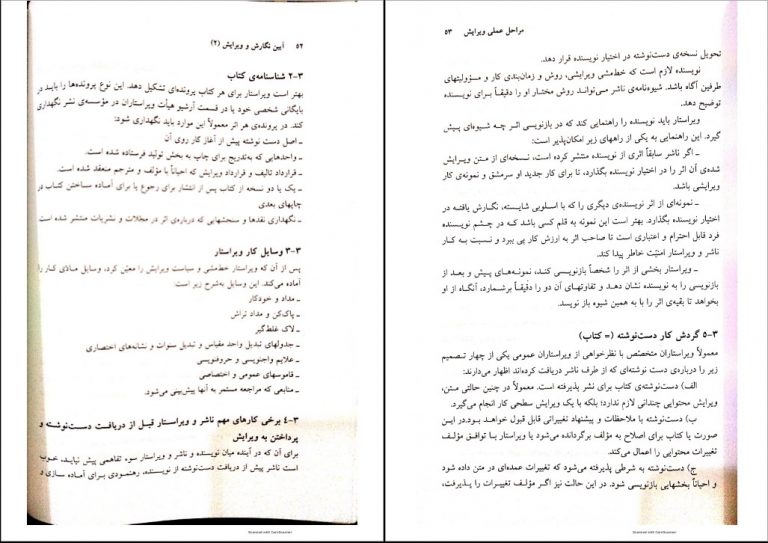 ۵۲    آیین نگارش و ویرایش (۲)
۳-۲ شناسنامه‌ی کتاب
بهتر است ویراستار برای هر کتاب پرونده‌ای تشکیل دهد. این نوع پرونده‌ها را باید در
بایگانی شخصی خود یا در قسمت آرشیو هیأت ویراستاران در مؤسسه‌ی نشر نگهداری
کند. در پرونده‌ی هر اثر معمولاً این موارد باید نگهداری شود:
ـ اصل دست نوشته پیش از آغاز کار روی آن
ـ واحدهایی که به‌تدریج برای چاپ به بخش تولید فرستاده شده است.
ـ قرارداد تالیف و قرارداد ویرایش که احیاناً با مؤلف و مترجم منعقد شده است.
ـ یک یا دو نسخه از کتاب پس از انتشار برای رجوع یا برای آماده ساختن کتاب در
چاپهای بعدی
ـ نگهداری نقدها و سنجشهایی که درباره‌ی اثر در مجلات و نشریات منتشر شده است
۳-۳ وسایل کار ویراستار
پس از آن که ویراستار خط‌مشی و سیاست ویرایش را معیّن کرد، وسایل مادّی کار را
آماده می‌کند. این وسایل به‌شرح زیر است:
ـ مداد و خودکار
ـ پاک‌کن و مداد تراش
ـ لاک غلط‌گیر
ـ جدولهای تبدیل واحد مقیاس و تبدیل سنوات و نشانه‌های اختصاری
ـ علایم واجنویسی و حروفنویسی
ـ قاموسهای عمومی و اختصاصی
ـ منابعی که مراجعه مستمر به آنها پیش‌بینی می‌شود.
۳-۴ برخی کارهای مهم ناشر و ویراستار قبل از دریافت دست‌نوشته و
پرداختن به ویرایش
برای آن که در آینده میان نویسنده و ناشر و ویراستار سوء تفاهمی پیش نیاید، خوب
است ناشر پیش از دریافت دست‌نوشته از نویسنده، رهنمودی برای آماده سازی و
Scanned with CamScanner
مراحل عملی ویرایش    ۵۳
تحویل نسخه‌ی دست‌نوشته در اختیار نویسنده قرار دهد.
نویسنده لازم است که خط‌مشی ویرایشی، روش و زمان‌بندی کار و مسؤولیتهای
طرفین آگاه باشد. شیوه‌نامه‌ی ناشر می‌تواند روش مختار او را دقیقاً برای نویسنده
توضیح دهد.
ویراستار باید نویسنده را راهنمایی کند که در بازنویسی اثر چه شیوه‌ای پیش
گیرد. این راهنمایی به یکی از راههای زیر امکان‌پذیر است:
ـ اگر ناشر سابقاً اثری از نویسنده منتشر کرده است، نسخه‌ای از متن ویرایش
شده‌ی آن اثر را در اختیار نویسنده بگذارد، تا برای کار جدید او سرمشق و نمونه‌ی کار
ویرایشی باشد.
ـ نمونه‌ای از اثر نویسنده‌ی دیگری را که با اسلوبی شایسته، نگارش یافته در
اختیار نویسنده بگذارد. بهتر است این نمونه به قلم کسی باشد که در چشم نویسنده
فرد قابل احترام و اعتباری است تا صاحب اثر به ارزش کار پی ببرد و نسبت به کار
ناشر و ویراستار امنیّت خاطر پیدا کند.
ـ ویراستار بخشی از اثر را شخصاً بازنویسی کند، نمونه‌های پیش و بعد از
بازنویسی را به نویسنده نشان دهد و تفاوتهای آن دو را دقیقاً برشمارد، آنگاه از او
بخواهد تا بقیه‌ی اثر را با به همین شیوه باز نویسد.
۳-۵ گردش کار دست‌نوشته (= کتاب)
معمولاً ویراستاران متخصّص با نظرخواهی از ویراستاران عمومی یکی از چهار تصمیم
زیر را درباره‌ی دست نوشته‌ای که از طرف ناشر دریافت کرده‌اند اظهار می‌دارند:
الف) دست‌نوشته‌ی کتاب برای نشر پذیرفته است. معمولاً در چنین حالتی متن،
ویرایش محتوایی چندانی لازم ندارد؛ بلکه با یک ویرایش سطحی کار انجام می‌گیرد.
ب) دست‌نوشته با ملاحظات و پیشنهاد تغییراتی قابل قبول خواهد بود.در این
صورت یا کتاب برای اصلاح به مؤلف برگردانده می‌شود یا ویراستار با توافق مؤلف
تغییرات محتوایی را اعمال می‌کند.
ج) دست‌نوشته به شرطی پذیرفته می‌شود که تغییرات عمده‌ای در متن داده شود
و احیاناً بخشهایی بازنویسی شود. در این حالت نیز اگر مؤلف تغییرات را پذیرفت،
Scanned with CamScanner